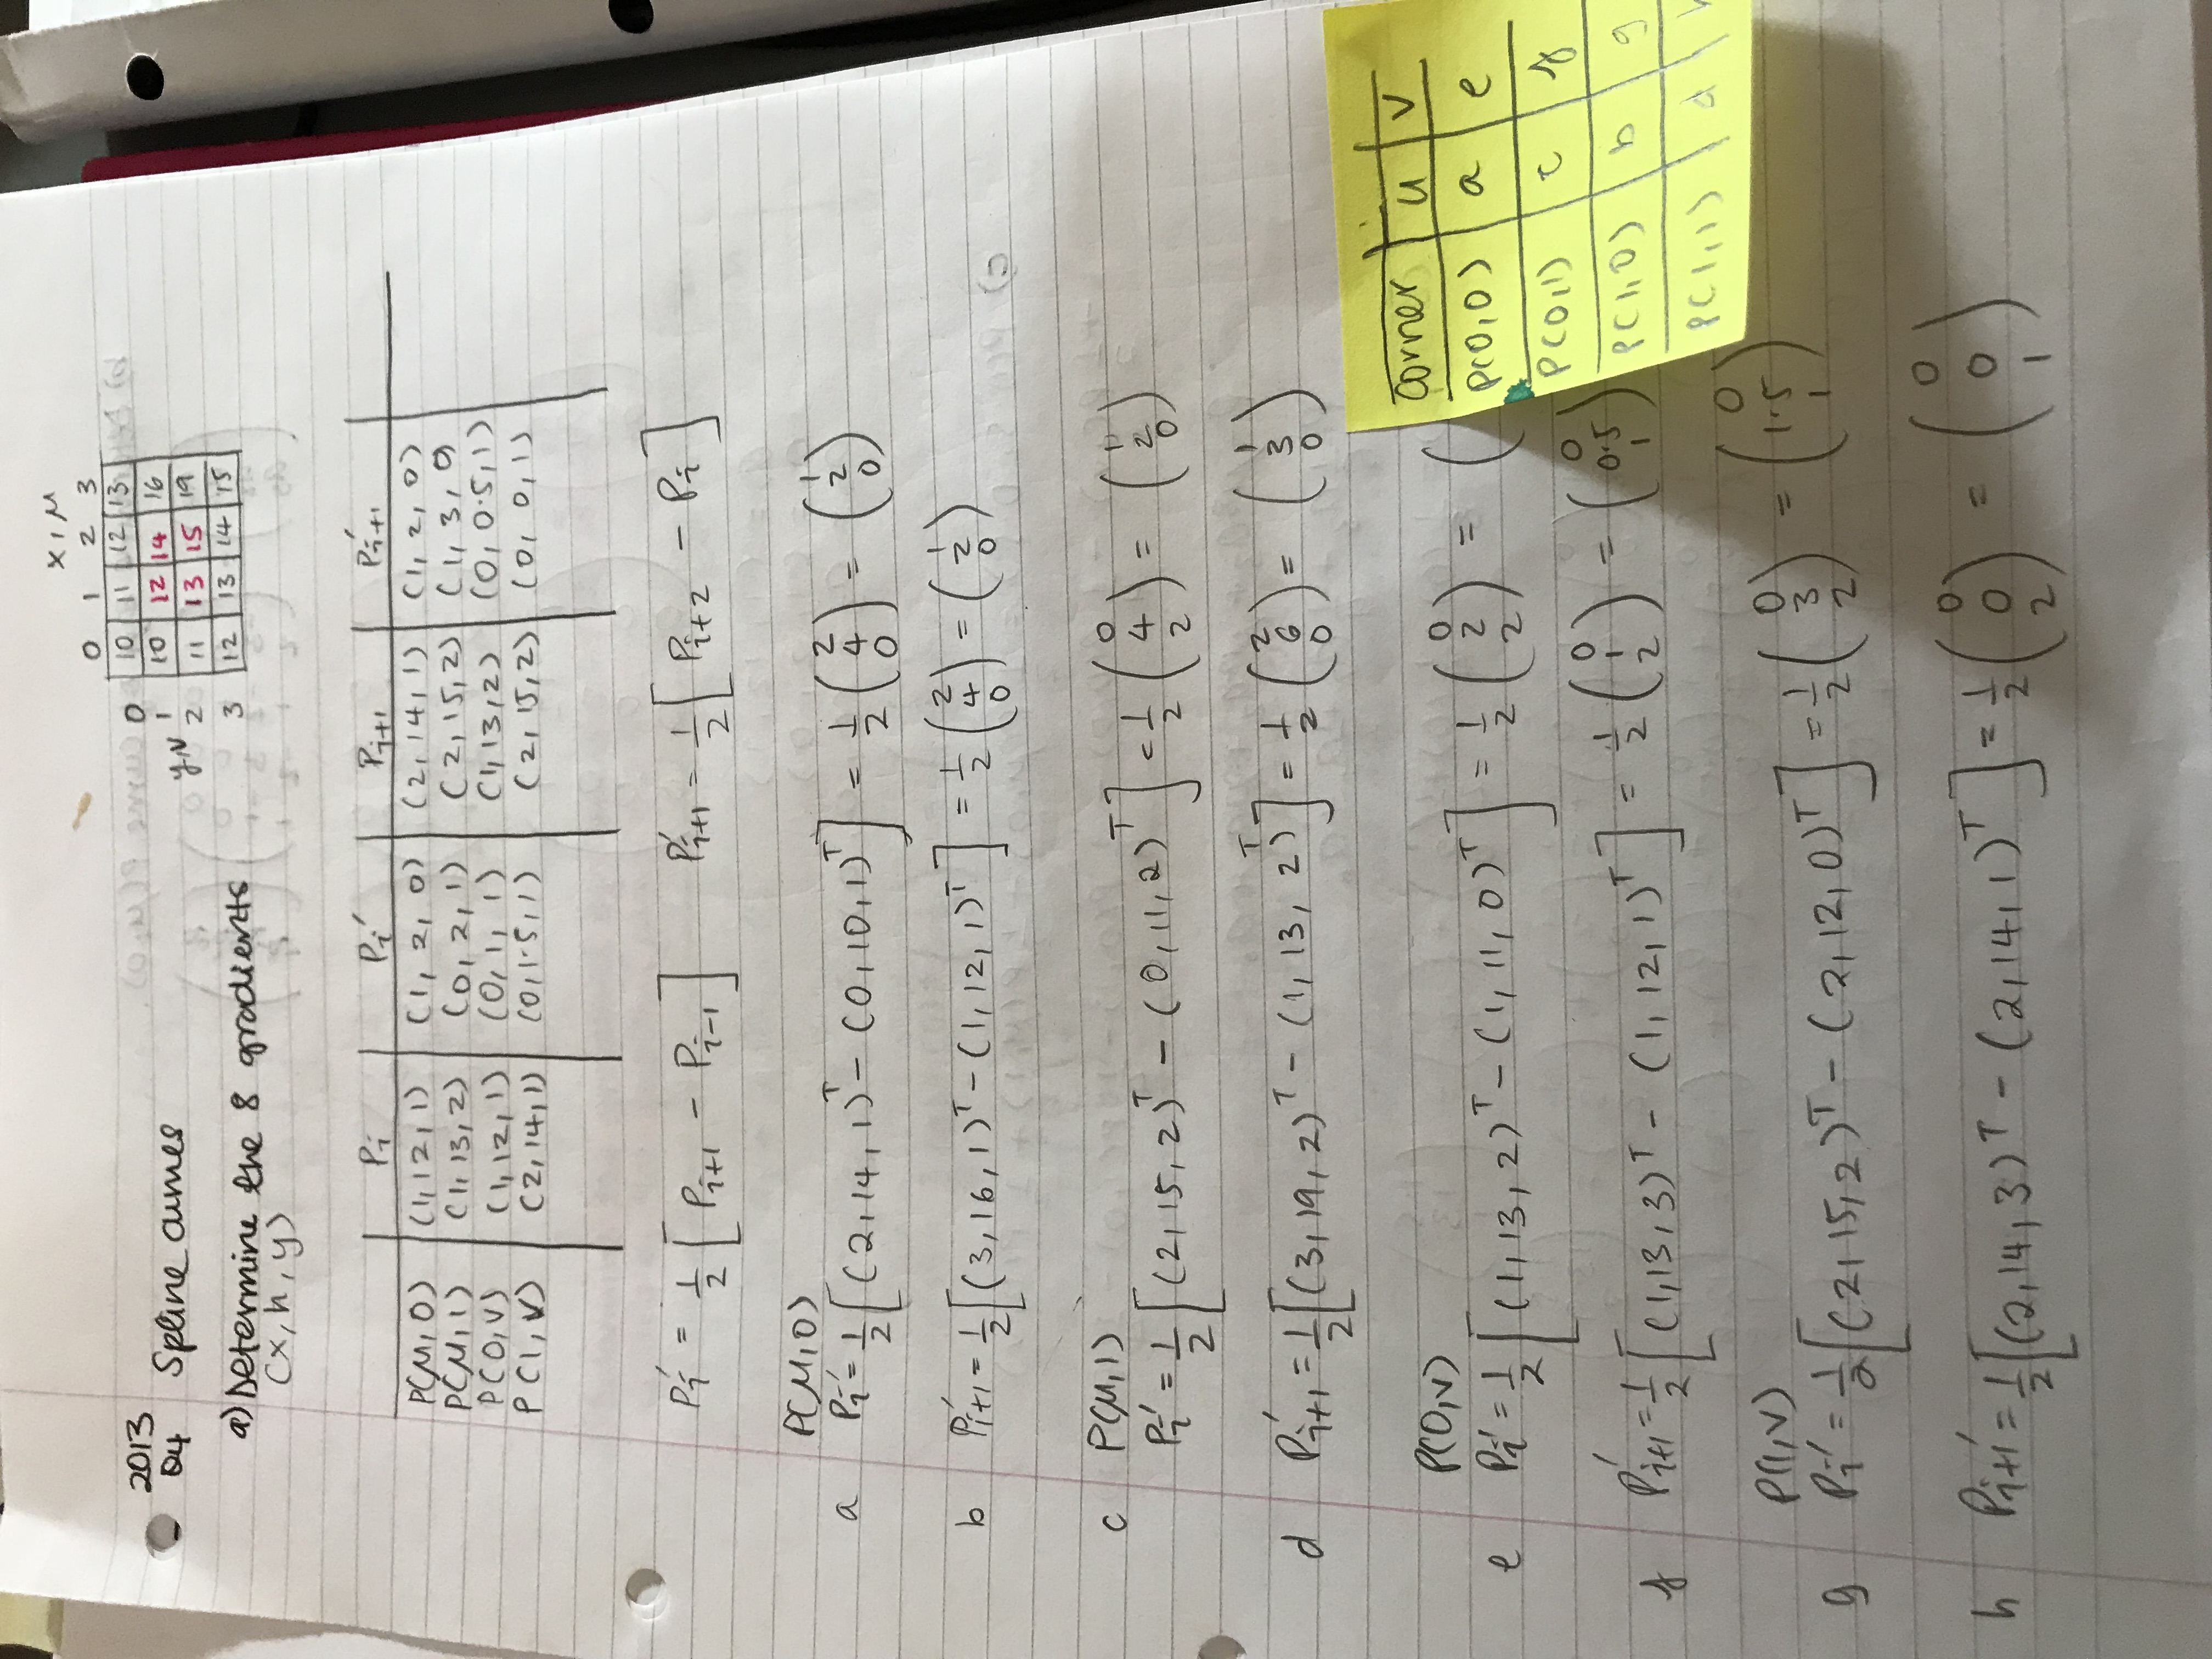 x, μ
0 1 2 3
0 10 11 12 13
1 10 12 14 16
y,v 2 11 13 15 19
3 12 13 14 15
2013
Q4 Spline curves
a) Determine the 8 gradients
(x, h, y)
Pi Pi' Pi+1 P'i+1
P(μ,0) (1,12,1) (1, 2, 0) (2,14,1) (1, 2, 0)
P(μ,1) (1,13,2) (0, 2, 1) (2,15,2) (1, 3, 0)
P(0,v) (1,12,1) (0, 1, 1) (1,13,2) (0, 0.5,1)
P(1,v) (2,14,1) (0,1.5,1) (2,15,2) (0, 0, 1)
Pi' = 1/2 [Pi+1 - Pi-1] P'i+1 = 1/2 [Pi+2 - Pi]
P(μ,0)
a Pi' = 1/2 [(2,14,1)ᵀ - (0,10,1)ᵀ] = 1/2 (2 4 0) = (1 2 0)
b P'i+1 = 1/2 [(3,16,1)ᵀ - (1,12,1)ᵀ] = 1/2 (2 4 0) = (1 2 0)
c P(μ,1)
Pi' = 1/2 [(2,15,2)ᵀ - (0,11,2)ᵀ] = 1/2 (0 4 2) = (1 2 0)
d P'i+1 = 1/2 [(3,19,2)ᵀ - (1,13,2)ᵀ] = 1/2 (2 6 0) = (1 3 0)
P(0,v)
e Pi' = 1/2 [(1,13,2)ᵀ - (1,11,0)ᵀ] = 1/2 (0 2 2) = (
f P'i+1 = 1/2 [(1,13,3)ᵀ - (1,12,1)ᵀ] = 1/2 (0 1 2) = (0 0.5 1)
P(1,v)
g Pi' = 1/2 [(2,15,2)ᵀ - (2,12,0)ᵀ] = 1/2 (0 3 2) = (0 1.5 1)
h Pi+1' = 1/2 [(2,14,3)ᵀ - (2,14,1)ᵀ] = 1/2 (0 0 2) = (0 0 1)
corner u v
P(0,0) a e
P(0,1) c f
P(1,0) b g
P(1,1) d h